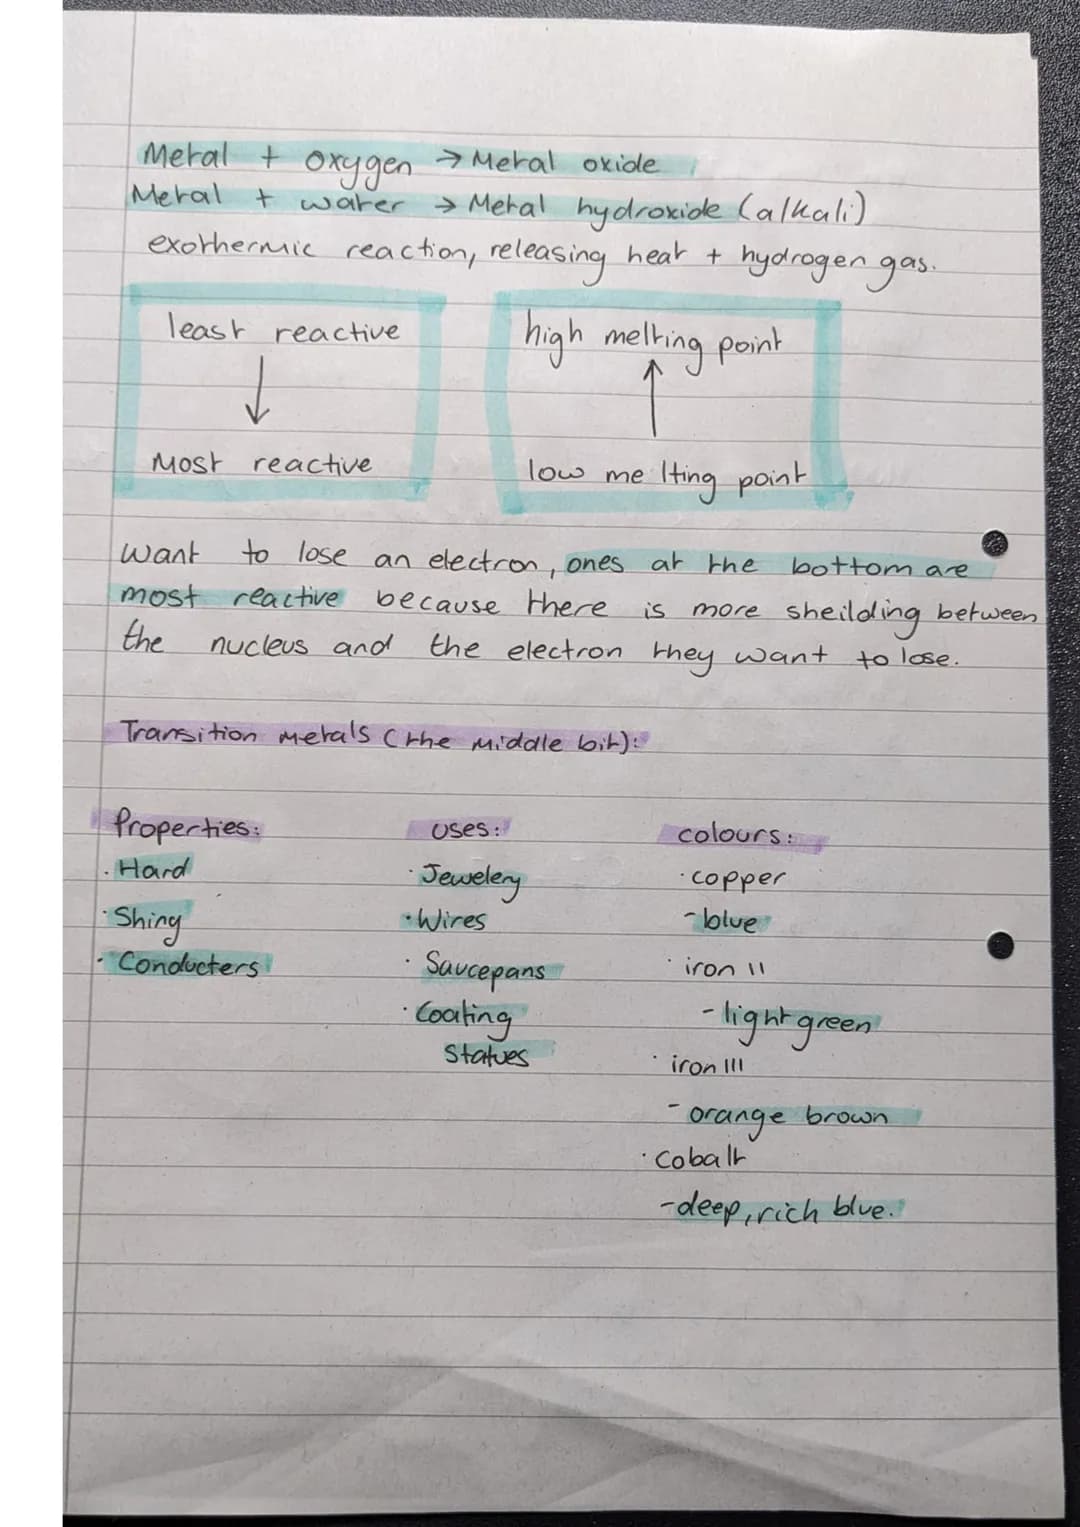 Metal + oxygen → Metal oxide
Metal + water → Metal hydroxide (alkali)
exothermic reaction, releasing heat + hydrogen gas.
least reactive
↓
Most reactive
high melting point
↑
low melting point
want to lose an electron, ones at the bottom are
most reactive because there is more sheilding between
the nucleus and the electron they want to lose.
Transition metals (the middle bit):
Properties:
· Hard
· Shiny
· Conducters
uses:
· Jewelery
· Wires
· Saucepans
· Coating
statues
colours:
· copper
- blue
· iron II
- light green
· iron III
- orange brown
· cobalt
- deep, rich blue.